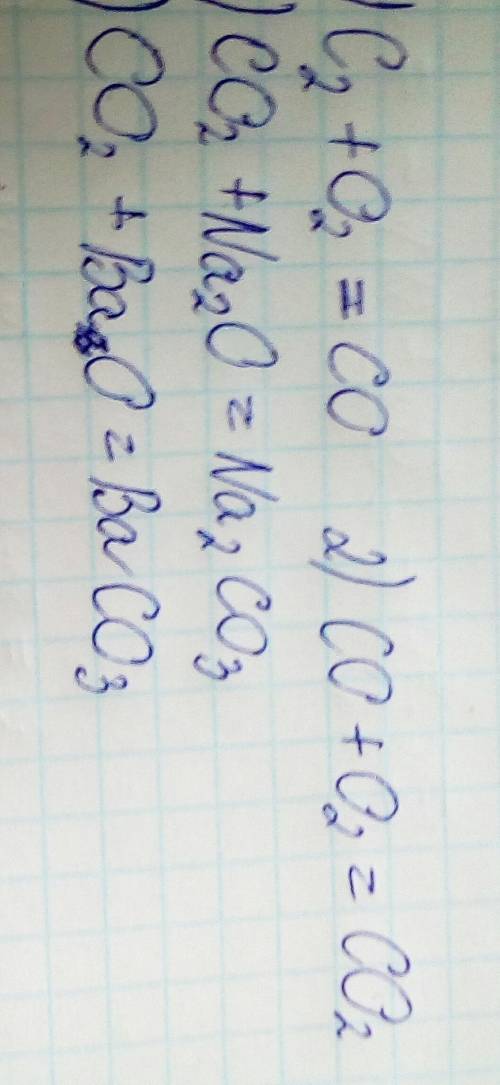 ) C₂ + O₂ = CO 2) CO + O₂ = CO₂
) CO₂ + Na₂O = Na₂CO₃
) CO₂ + BaO = BaCO₃